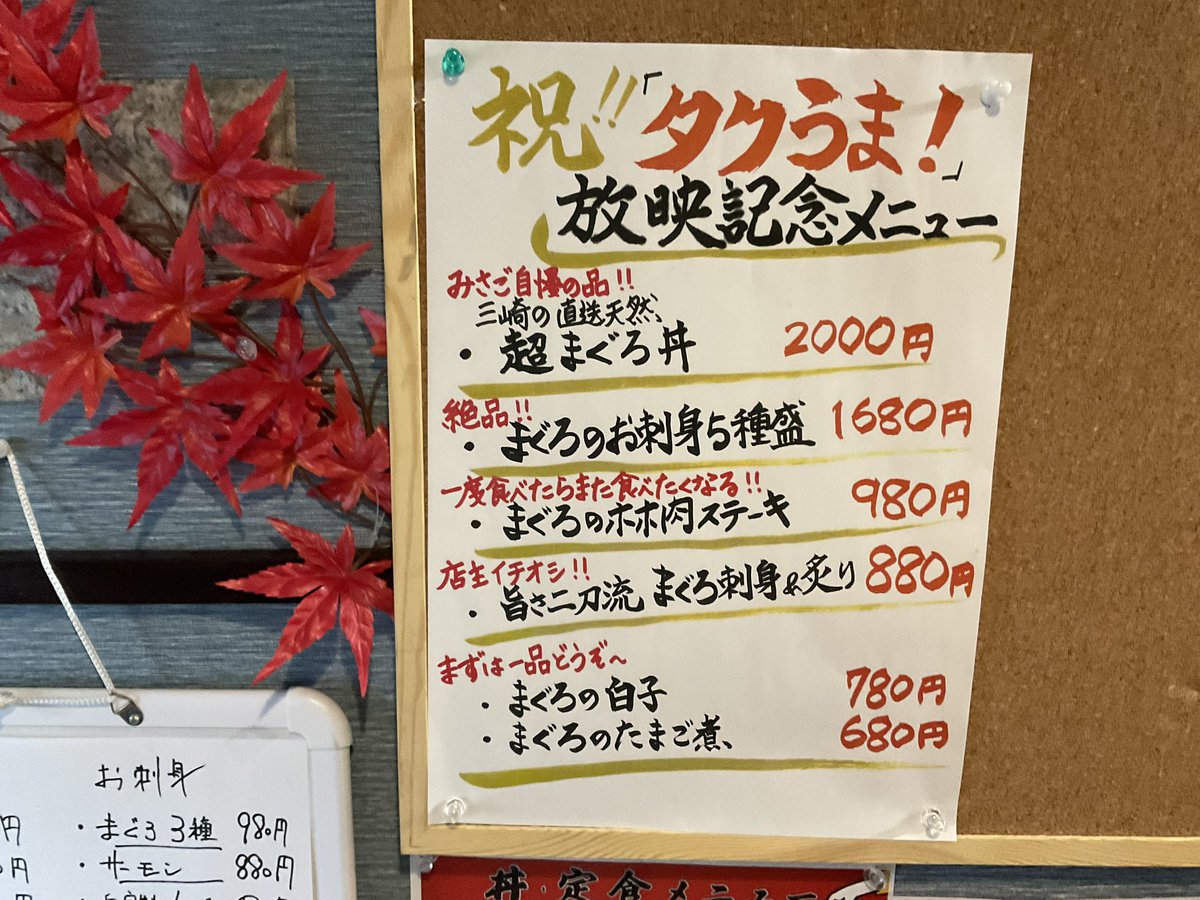 祝!!「タクうま!」
放映記念メニュー
みさご自慢の品!!
三崎の直送天然、
・超まぐろ丼 2000円
絶品!!
・まぐろのお刺身5種盛 1680円
一度食べたらまた食べたくなる!!
・まぐろのホホ肉ステーキ 980円
店主イチオシ!!
・旨さ二刀流 まぐろ刺身&炙り 880円
まずは一品どうぞ~
・まぐろの白子 780円
・まぐろのたまご煮、 680円
お刺身
・まぐろ3種 980円
・サーモン 880円
丼・定食メニュー